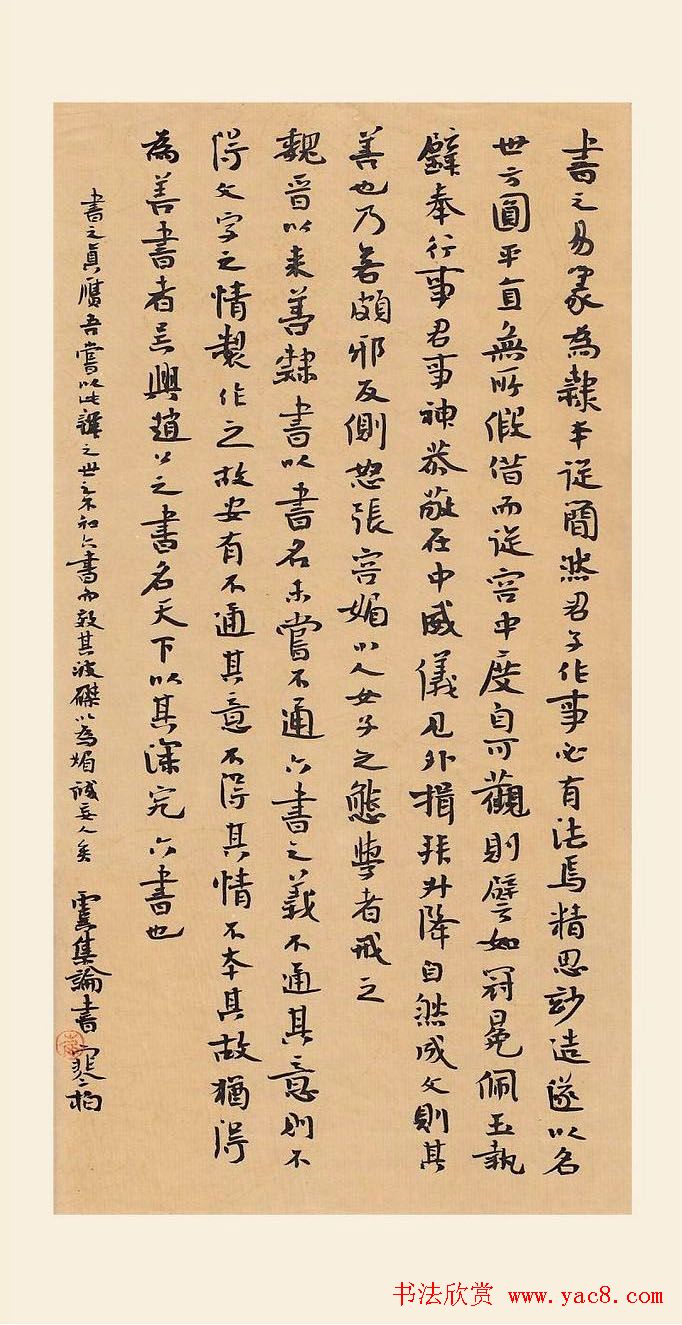 書之易篆為隸本從簡然君子作事必有法焉精思妙造遂以名
世方圓平直無所假借而從容中度自可觀則譬如冠冕佩玉執
璧奉行事君事神恭敬在中威儀見外揖拜升降自然成文則其
善也乃若頗邪反側怒張容媚小人女子之態學者戒之
魏晉以來善隸書以書名未嘗不通六書之義不通其意則不
得文字之情製作之故安有不通其意不得其情不本其故猶得
為善書者吳興趙公之書名天下以其深究六書也
書之真贗吾嘗以此辨之世之不知六書而效其波磔以為媚誠妄人矣
虞集論書
书法欣赏 www.yac8.com